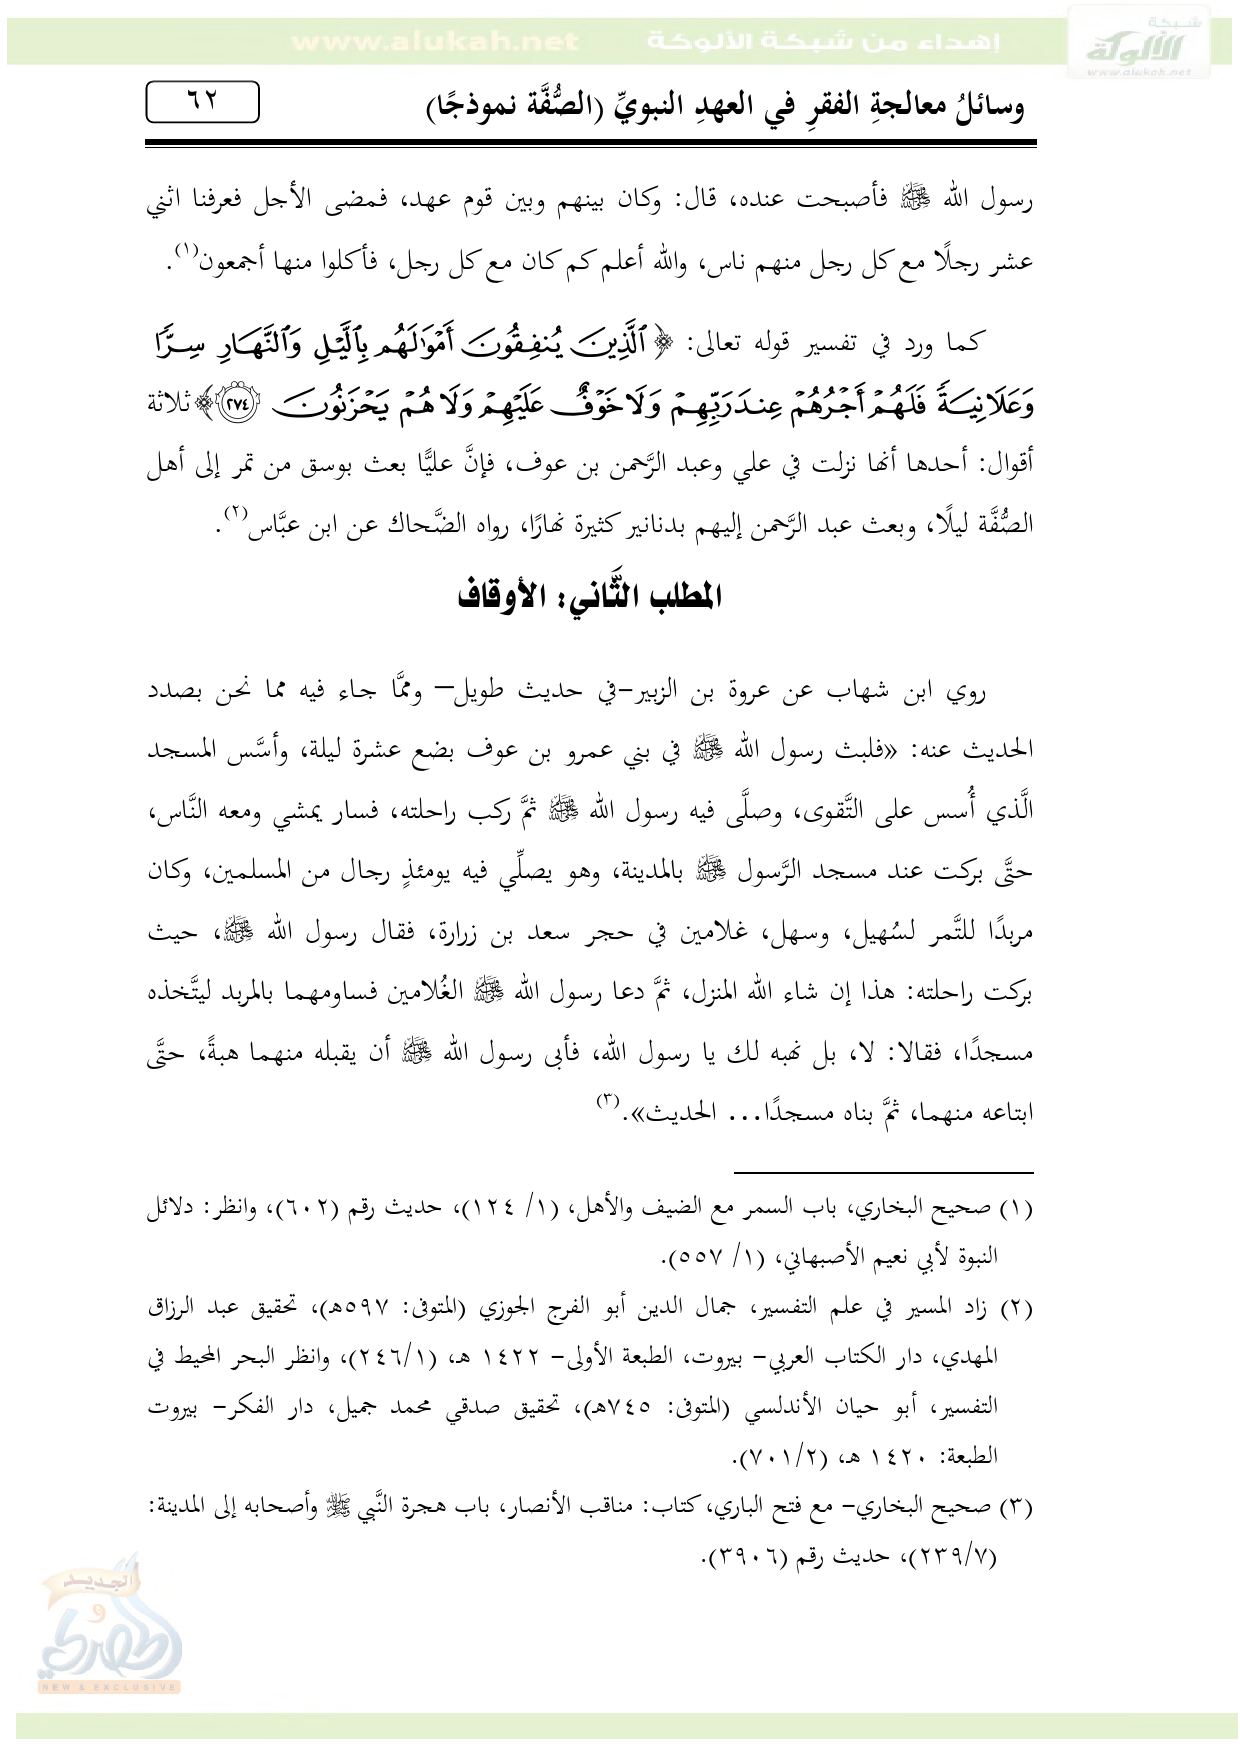 www.alukah.net إهداء من شبكة الألوكة
شبكة
الألوكة
www.alukah.net
وسائلُ معالجةِ الفقرِ في العهدِ النبويِّ (الصُّفَّة نموذجًا) ٦٢
رسول الله ﷺ فأصبحت عنده، قال: وكان بينهم وبين قوم عهد، فمضى الأجل فعرفنا اثني
عشر رجلًا مع كل رجل منهم ناس، والله أعلم كم كان مع كل رجل، فأكلوا منها أجمعون(١).
كما ورد في تفسير قوله تعالى: ﴿ ٱلَّذِينَ يُنفِقُونَ أَمْوَٰلَهُم بِٱلَّيْلِ وَٱلنَّهَارِ سِرًّا
وَعَلَانِيَةً فَلَهُمْ أَجْرُهُمْ عِندَ رَبِّهِمْ وَلَا خَوْفٌ عَلَيْهِمْ وَلَا هُمْ يَحْزَنُونَ ٢٧٤ ﴾ ثلاثة
أقوال: أحدها أنها نزلت في علي وعبد الرَّحمن بن عوف، فإنَّ عليًّا بعث بوسق من تمر إلى أهل
الصُّفَّة ليلًا، وبعث عبد الرَّحمن إليهم بدنانير كثيرة نهارًا، رواه الضَّحاك عن ابن عبَّاس(٢).
المطلب الثَّاني: الأوقاف
روي ابن شهاب عن عروة بن الزبير–في حديث طويل– وممَّا جاء فيه مما نحن بصدد
الحديث عنه: «فلبث رسول الله ﷺ في بني عمرو بن عوف بضع عشرة ليلة، وأسَّس المسجد
الَّذي أُسس على التَّقوى، وصلَّى فيه رسول الله ﷺ ثمَّ ركب راحلته، فسار يمشي ومعه النَّاس،
حتَّى بركت عند مسجد الرَّسول ﷺ بالمدينة، وهو يصلِّي فيه يومئذٍ رجال من المسلمين، وكان
مربدًا للتَّمر لسُهيل، وسهل، غلامين في حجر سعد بن زرارة، فقال رسول الله ﷺ، حيث
بركت راحلته: هذا إن شاء الله المنزل، ثمَّ دعا رسول الله ﷺ الغُلامين فساومهما بالمربد ليتَّخذه
مسجدًا، فقالا: لا، بل نهبه لك يا رسول الله، فأبى رسول الله ﷺ أن يقبله منهما هبةً، حتَّى
ابتاعه منهما، ثمَّ بناه مسجدًا... الحديث».(٣)
(١) صحيح البخاري، باب السمر مع الضيف والأهل، (١/ ١٢٤)، حديث رقم (٦٠٢)، وانظر: دلائل
النبوة لأبي نعيم الأصبهاني، (١/ ٥٥٧).
(٢) زاد المسير في علم التفسير، جمال الدين أبو الفرج الجوزي (المتوفى: ٥٩٧هـ)، تحقيق عبد الرزاق
المهدي، دار الكتاب العربي– بيروت، الطبعة الأولى– ١٤٢٢ هـ، (٢٤٦/١)، وانظر البحر المحيط في
التفسير، أبو حيان الأندلسي (المتوفى: ٧٤٥هـ)، تحقيق صدقي محمد جميل، دار الفكر– بيروت
الطبعة: ١٤٢٠ هـ، (٧٠١/٢).
(٣) صحيح البخاري– مع فتح الباري، كتاب: مناقب الأنصار، باب هجرة النَّبي ﷺ وأصحابه إلى المدينة:
(٢٣٩/٧)، حديث رقم (٣٩٠٦).
الجديد
و
الحصري
NEW & EXCLUSIVE